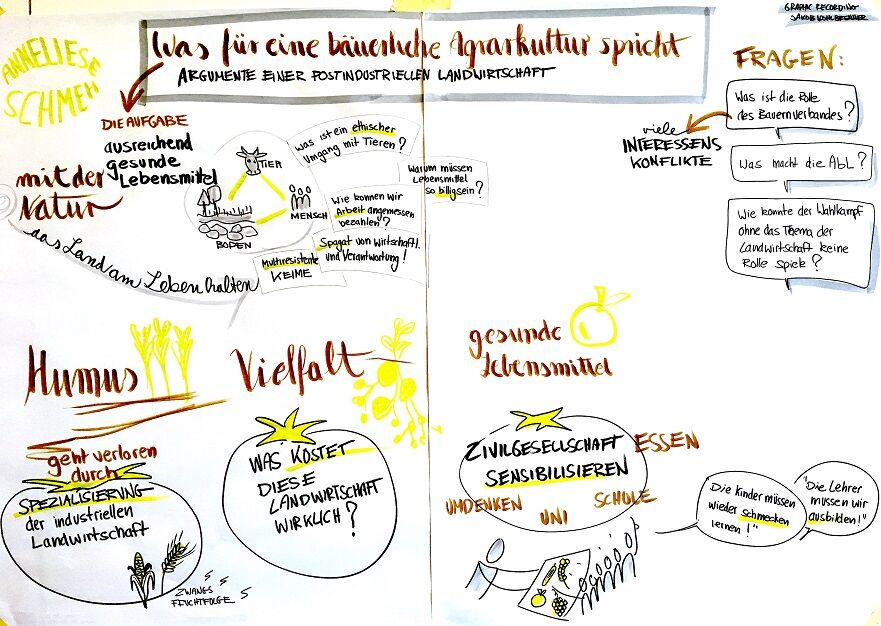 GRAPHIC RECORDING
ANNELIESE
SCHMEH
Was für eine bäuerliche Agrarkultur spricht
ARGUMENTE EINER POSTINDUSTRIELLEN LANDWIRTSCHAFT
DIE AUFGABE
ausreichend
gesunde
Lebensmittel
mit der
Natur
das Land am Leben halten
TIER
MENSCH
BODEN
Was ist ein ethischer
Umgang mit Tieren?
Warum müssen
Lebensmittel
so billig sein?
Wie können wir
Arbeit angemessen
bezahlen?
Spagat von Wirtschaftl.
und Verantwortung!
Multiresistente
KEIME
FRAGEN:
Was ist die Rolle
des Bauernverbandes?
viele
INTERESSENS
KONFLIKTE
Was macht die AbL?
Wie konnte der Wahlkampf
ohne das Thema der
Landwirtschaft keine
Rolle spiele?
Humus
geht verloren
durch
SPEZIALISIERUNG
der industriellen
Landwirtschaft
ZWANGS
FRUCHTFOLGE
Vielfalt
WAS KOSTET
DIESE
LANDWIRTSCHAFT
WIRKLICH?
gesunde
Lebensmittel
ZIVILGESELLSCHAFT
SENSIBILISIEREN
ESSEN
UMDENKEN
UNI
SCHULE
"Die Kinder müssen
wieder schmecken
lernen!"
"Die Lehrer
müssen wir
ausbilden!"